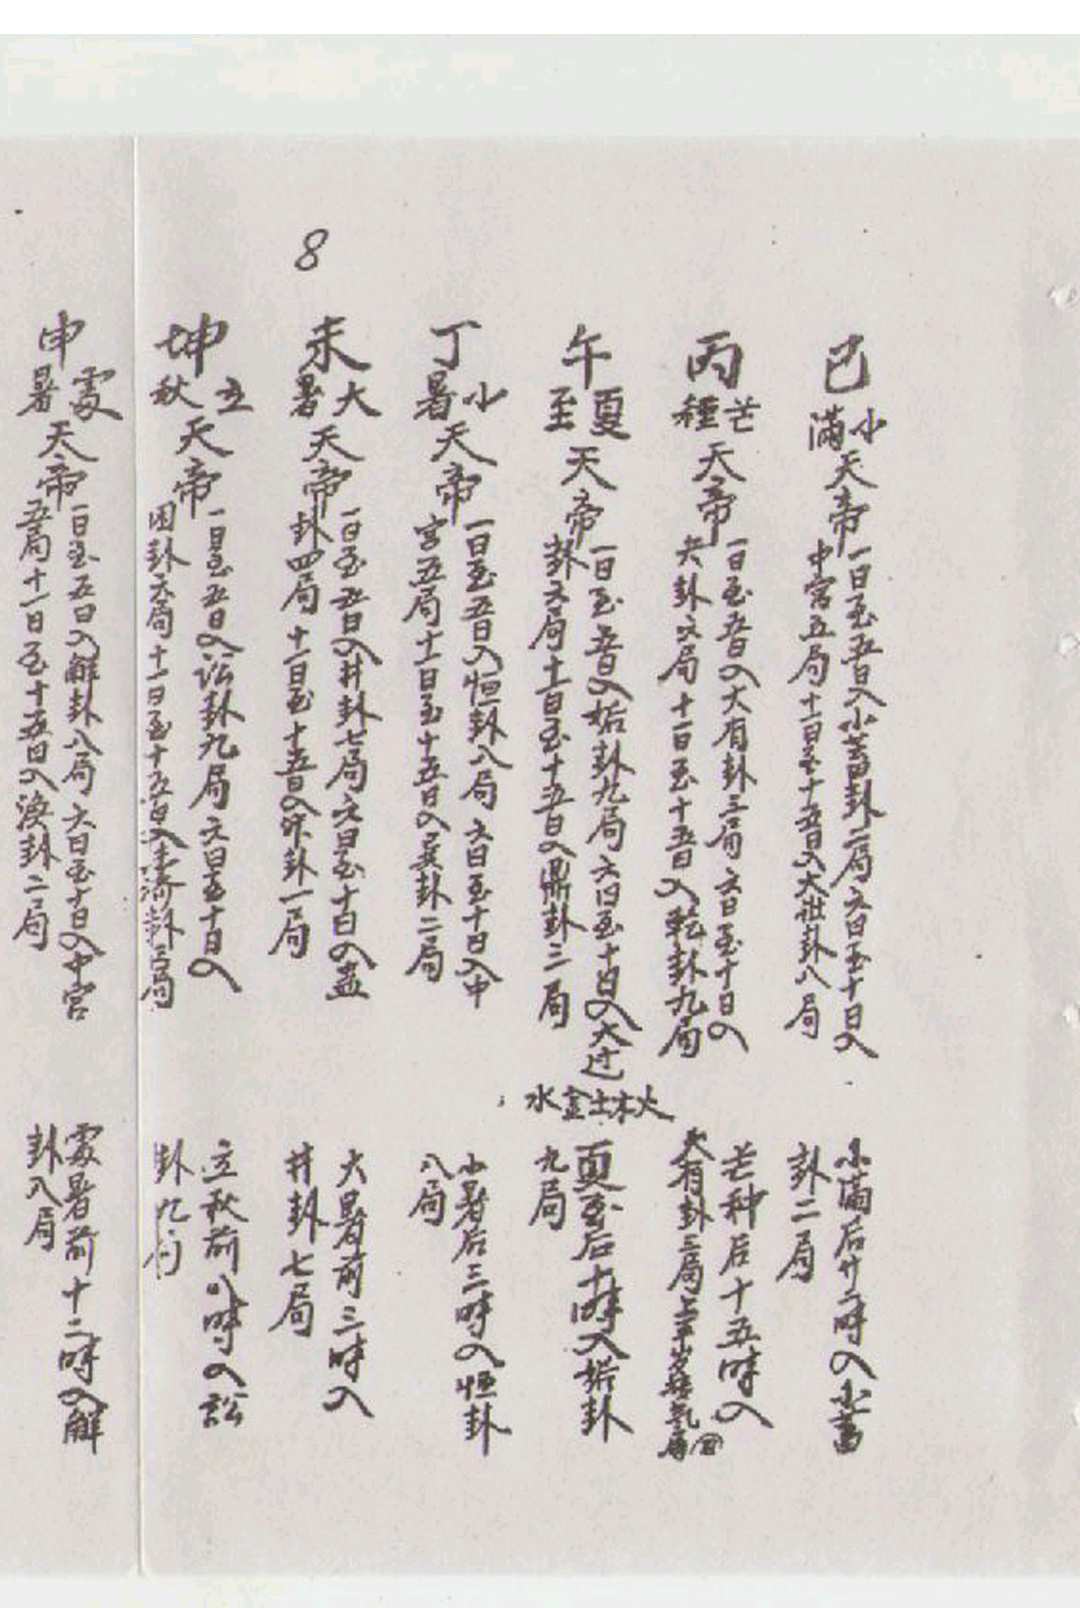 8
巳
小滿
天帝
一日至五日入小畜卦二局六日至十日入
中宮五局十一日至十五日入大壯卦八局
小滿后廿一時入小畜
卦二局
丙
芒種
天帝
一日至五日入大有卦三局六日至十日入
夬卦六局十一日至十五日入乾卦九局
芒种后十五時入
大有卦三局
午
夏至
天帝
一日至五日入姤卦九局六日至十日入大过
卦六局十一日至十五日入鼎卦三局
火木土金水
夏至后十時入姤卦
九局
丁
小暑
天帝
一日至五日入恒卦八局六日至十日入中
宮五局十一日至十五日入巽卦二局
小暑后三時入恒卦
八局
未
大暑
天帝
一日至五日入井卦七局六日至十日入蛊
卦四局十一日至十五日入升卦一局
大暑前三時入
井卦七局
坤
立秋
天帝
一日至五日入訟卦九局六日至十日入
困卦六局十一日至十五日入未济卦三局
立秋前八時入訟
卦九局
申
處暑
天帝
一日至五日入解卦八局六日至十日入中宮
五局十一日至十五日入渙卦二局
處暑前十二時入解
卦八局